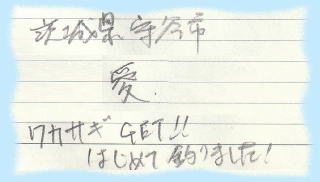 茨城県守谷市
愛.
ワカサギ GET!!
はじめて釣りました!